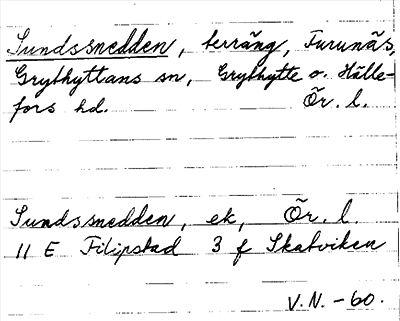 Sundssnedden, terräng, Furunäs,
Grythyttans sn, Grythytte o. Hälle-
fors hd. Ör. l.
Sundssnedden, ek, Ör. l.
11 E Filipstad 3 f Skatviken
V.N. -60.